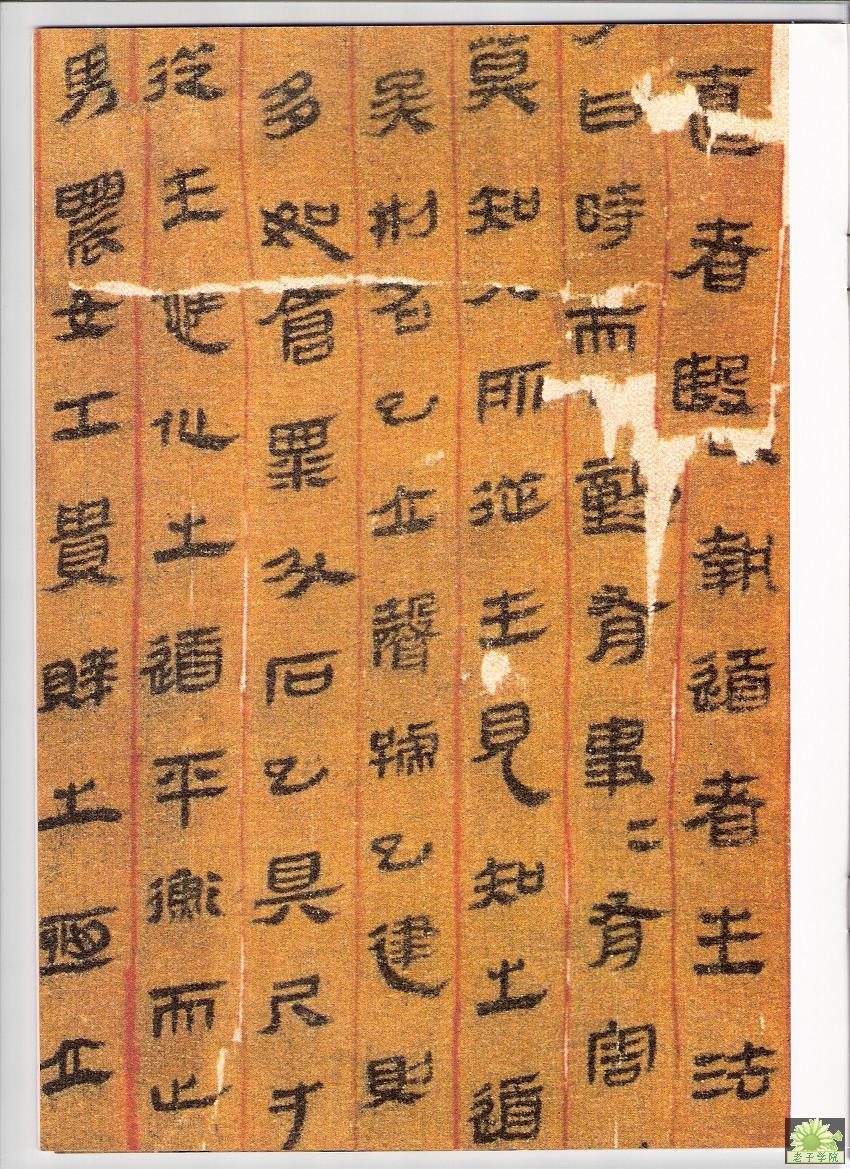 直者殹執道者生法
曰時而動有事=有害
莫知其所從生見知之道
矣刑名已立聲號已建則
多如倉粟斗石已具尺寸
從生應化之道平衡而止
男農女工貴賤之恒立
老子学院